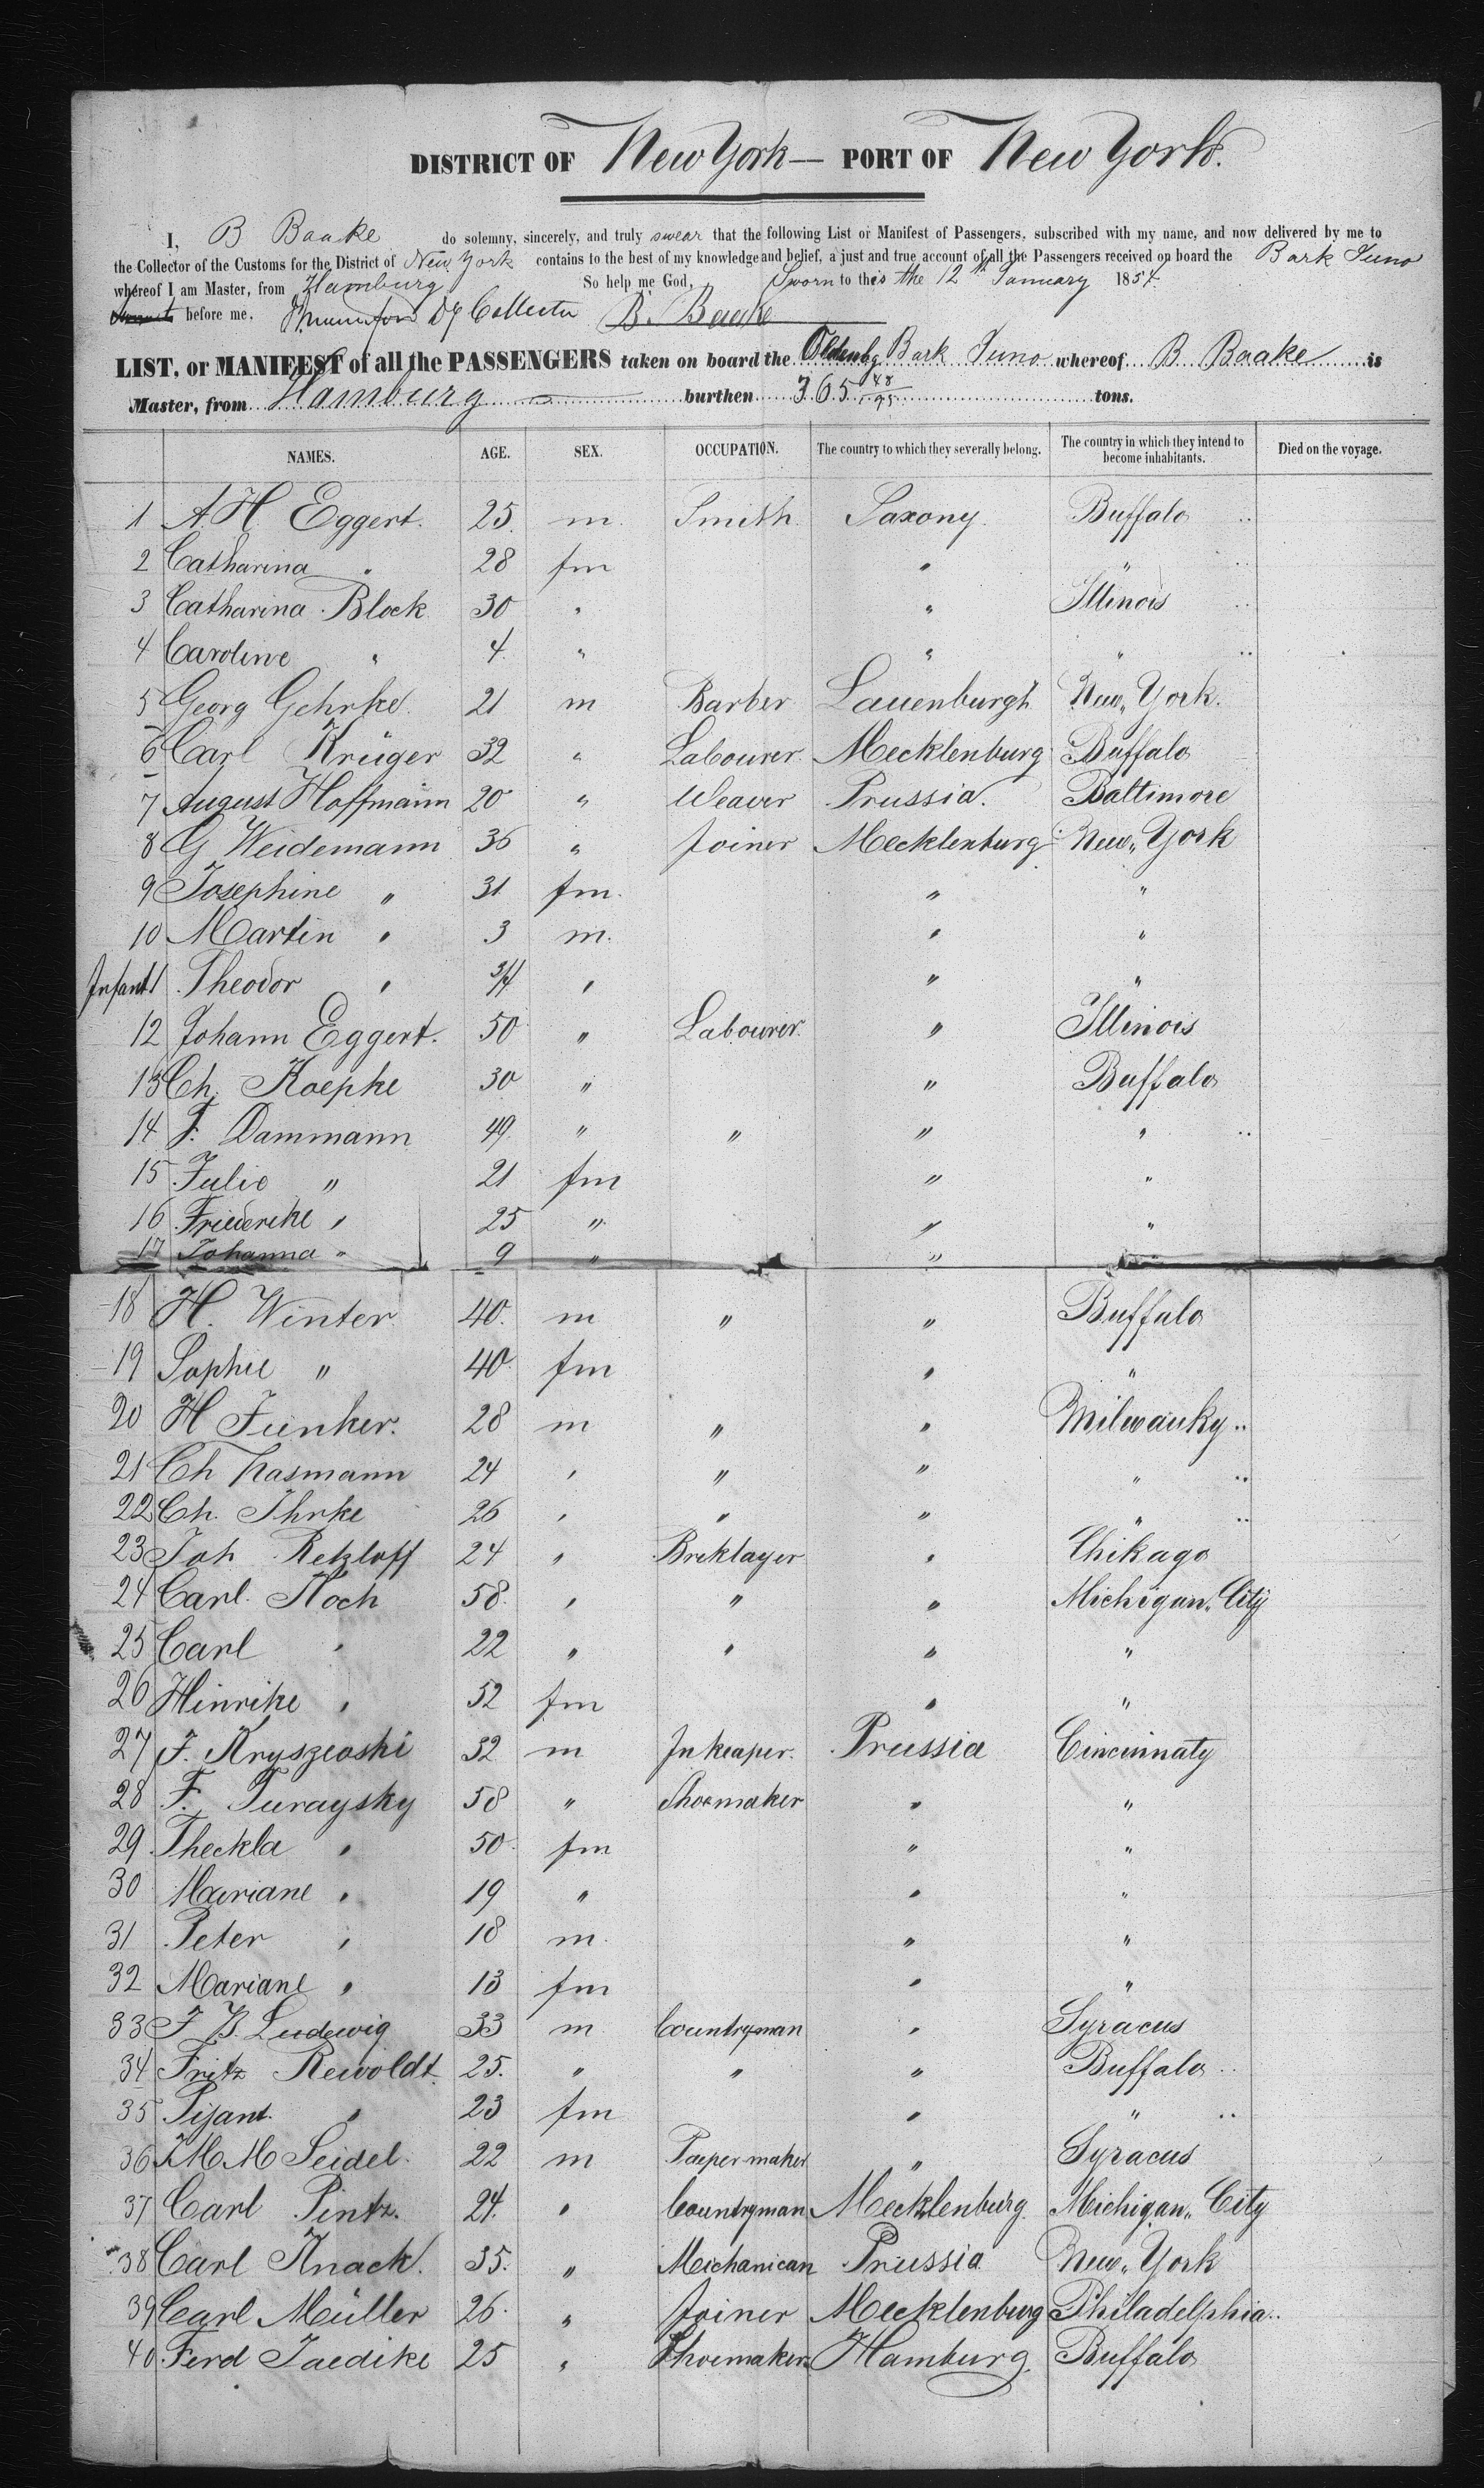 DISTRICT OF New York — PORT OF New York.
I, B Baake do solemny, sincerely, and truly swear that the following List or Manifest of Passengers, subscribed with my name, and now delivered by me to
the Collector of the Customs for the District of New York contains to the best of my knowledge and belief, a just and true account of all the Passengers received on board the Bark Juno
whereof I am Master, from Hamburg So help me God, Sworn to this the 12th January 1854.
before me. Dy Collector B. Baake
LIST, or MANIFEST of all the PASSENGERS taken on board the Oldenbg Bark Juno whereof B Baake is
Master, from Hamburg burthen 365 48/95 tons.
NAMES. AGE. SEX. OCCUPATION. The country to which they severally belong. The country in which they intend to become inhabitants. Died on the voyage.
1 A. H. Eggert. 25 m. Smith Saxony. Buffalo ..
2 Catharina " 28 fm " " ..
3 Catharina Block 30 " " Illinois ..
4 Caroline " 4 " " " ..
5 Georg Gehrke. 21 m Barber Lauenburgh New York.
6 Carl Krüger 32 " Labourer. Mecklenburg Buffalo
7 August Hoffmann 20 " Weaver Prussia. Baltimore
8 G Weidemann 36 " Joiner Mecklenburg New York
9 Josephine " 31 fm. " "
10 Martin " 3 m. " "
Infant Theodor " 3/4 " " "
12 Johann Eggert. 50 " Labourer. " Illinois
13 Ch. Koepke 30 " " Buffalo
14 F. Dammann 49 " " " " ..
15 Julie " 21 fm " "
16 Friedereke " 25 " " "
17 Johanna " 9 " "
18 H. Winter 40. m " " Buffalo
19 Sophie " 40. fm " "
20 H Junker. 28 m " " Milwauky ..
21 Ch Kasmann 24 " " " " ..
22 Ch. Ihrke 26 " " " " ..
23 Joh Retzloff 24 " Breklayer " Chikago
24 Carl Koch 58. " " " Michigan City
25 Carl " 22 " " " "
26 Hinrike " 52 fm " "
27 F. Kryszewski 32 m Inkeaper. Prussia Cincinnaty
28 F. Turaysky 58 " Shoemaker " "
29 Theckla " 50. fm " "
30 Mariane " 19 " " "
31 Peter " 18 m. " "
32 Mariane " 13 fm " "
33 F B. Ludewig 33 m Countryman " Syracus
34 Fritz Rewoldt. 25. " " " Buffalo ..
35 " 23 fm " " ..
36 M Seidel. 22 m Paeper maker " Syracus
37 Carl Pintz. 24. " Countryman Mecklenburg. Michigan City
38 Carl Knack. 35. " Mechanican Prussia New York
39 Carl Müller 26. " Joiner Mecklenburg Philadelphia ..
40 Ferd Jaedike 25 " Shoemaker Hamburg. Buffalo